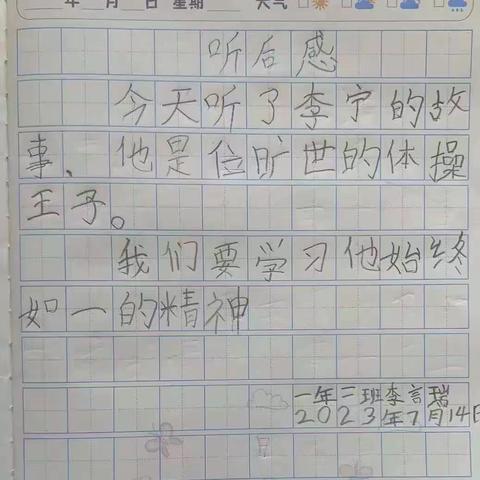 年 月 日 星期 天气
听后感
今天听了李宁的故
事、他是位旷世的体操
王子。
我们要学习他始终
如一的精神
一年三班李言瑞
2023年7月14日